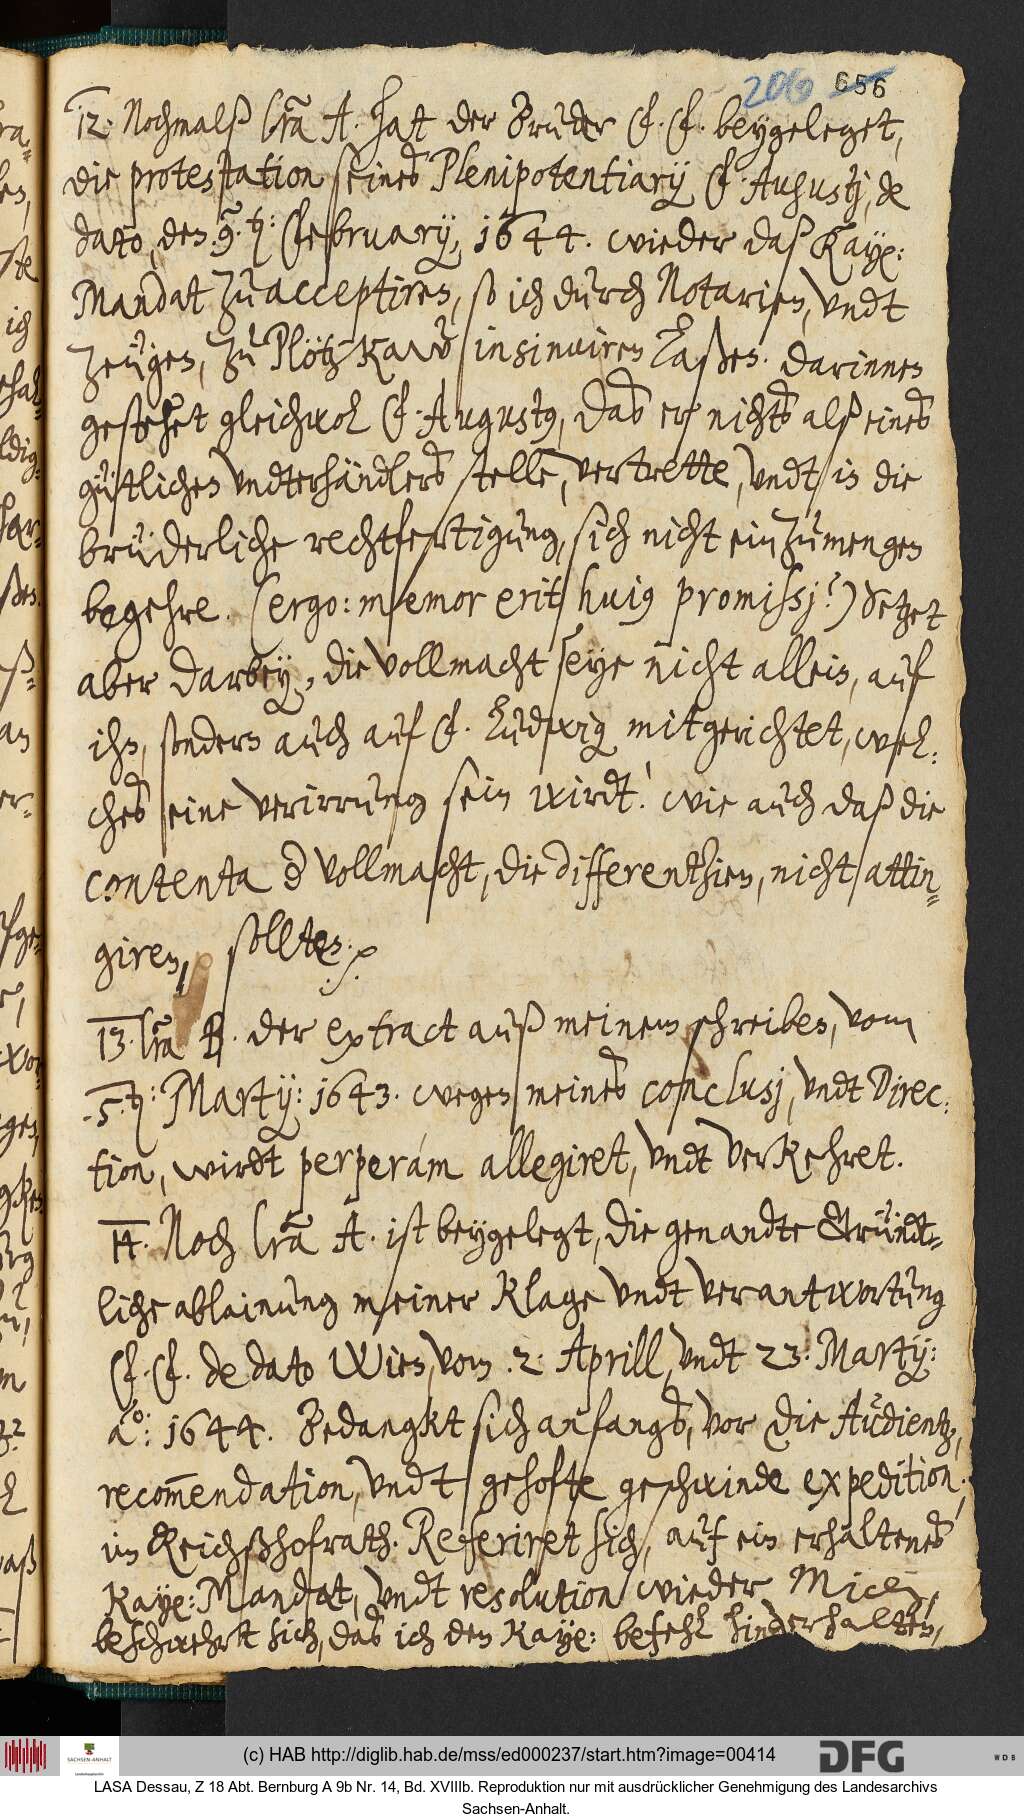 206 656
12. Nochmalß Lra A. hat der Bruder F. F. beygeleget,
die protestation seines Plenipotentiarij F. Augustj, de
dato, den 9. t: February, 1644. wieder daß Kaye:
Mandat zu acceptiren, so ich durch Notarien, undt
zeugen, zu Plötzkaw insinuiren laßen. darinnen
gestehet gleichwol F. Augustg, das er nichts alß eines
gütlichen Undterhändlers stelle, vertrette, undt in die
brüderliche rechtfertigung, sich nicht ein zu mengen
begehre. (ergo: memor erit huig promissj?) Setzet
aber darbey, die Vollmacht seye nicht allein, auf
ihn, sondern auch auf F. Ludwig mitgerichtet, wel:
ches eine Verirrung sein wirdt! wie auch daß die
contenta d Vollmacht, die differenthien, nicht attin=
giren, sollten. p.
13. Lra B. der extract auß meinem schreiben, vom
5. t: Martij: 1643. wegen meines conclusj, undt Direc:
tion, wirdt perperám allegiret, undt Verkehret.
14. Noch Lra A. ist beygelegt, die genandte Gründt=
liche ablainung meiner Klage undt Verantwortung
F. F. de dato Wien, vom .2. Aprill, undt 23. Martij:
ao: 1644. Bedangkt sich anfangs, vor die Audientz,
recom̄endation, undt gehofte geschwinde expedition.
im Reichßhofrath. Referiret sich, auf ein erhaltenes
Kaye: Mandat, undt resolution wieder Mich,
beschwehrt sich, das ich den Kaye: befehl hinderhalten,
(c) HAB http://diglib.hab.de/mss/ed000237/start.htm?image=00414
SACHSEN-ANHALT
DFG
WDB
LASA Dessau, Z 18 Abt. Bernburg A 9b Nr. 14, Bd. XVIIIb. Reproduktion nur mit ausdrücklicher Genehmigung des Landesarchivs
Sachsen-Anhalt.